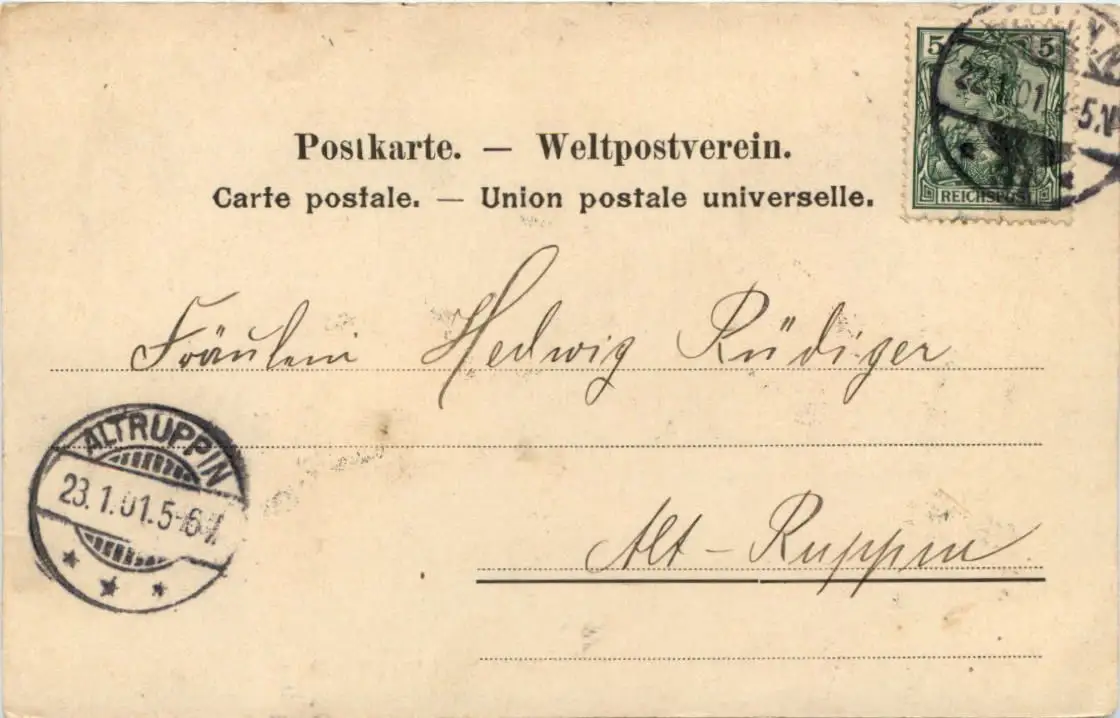 5 5
REICHSPOST
22.1.01. 4-5.N
Postkarte. — Weltpostverein.
Carte postale. — Union postale universelle.
Fräulein Hedwig Rüdiger
ALTRUPPIN
23.1.01.5-6
Alt-Ruppin